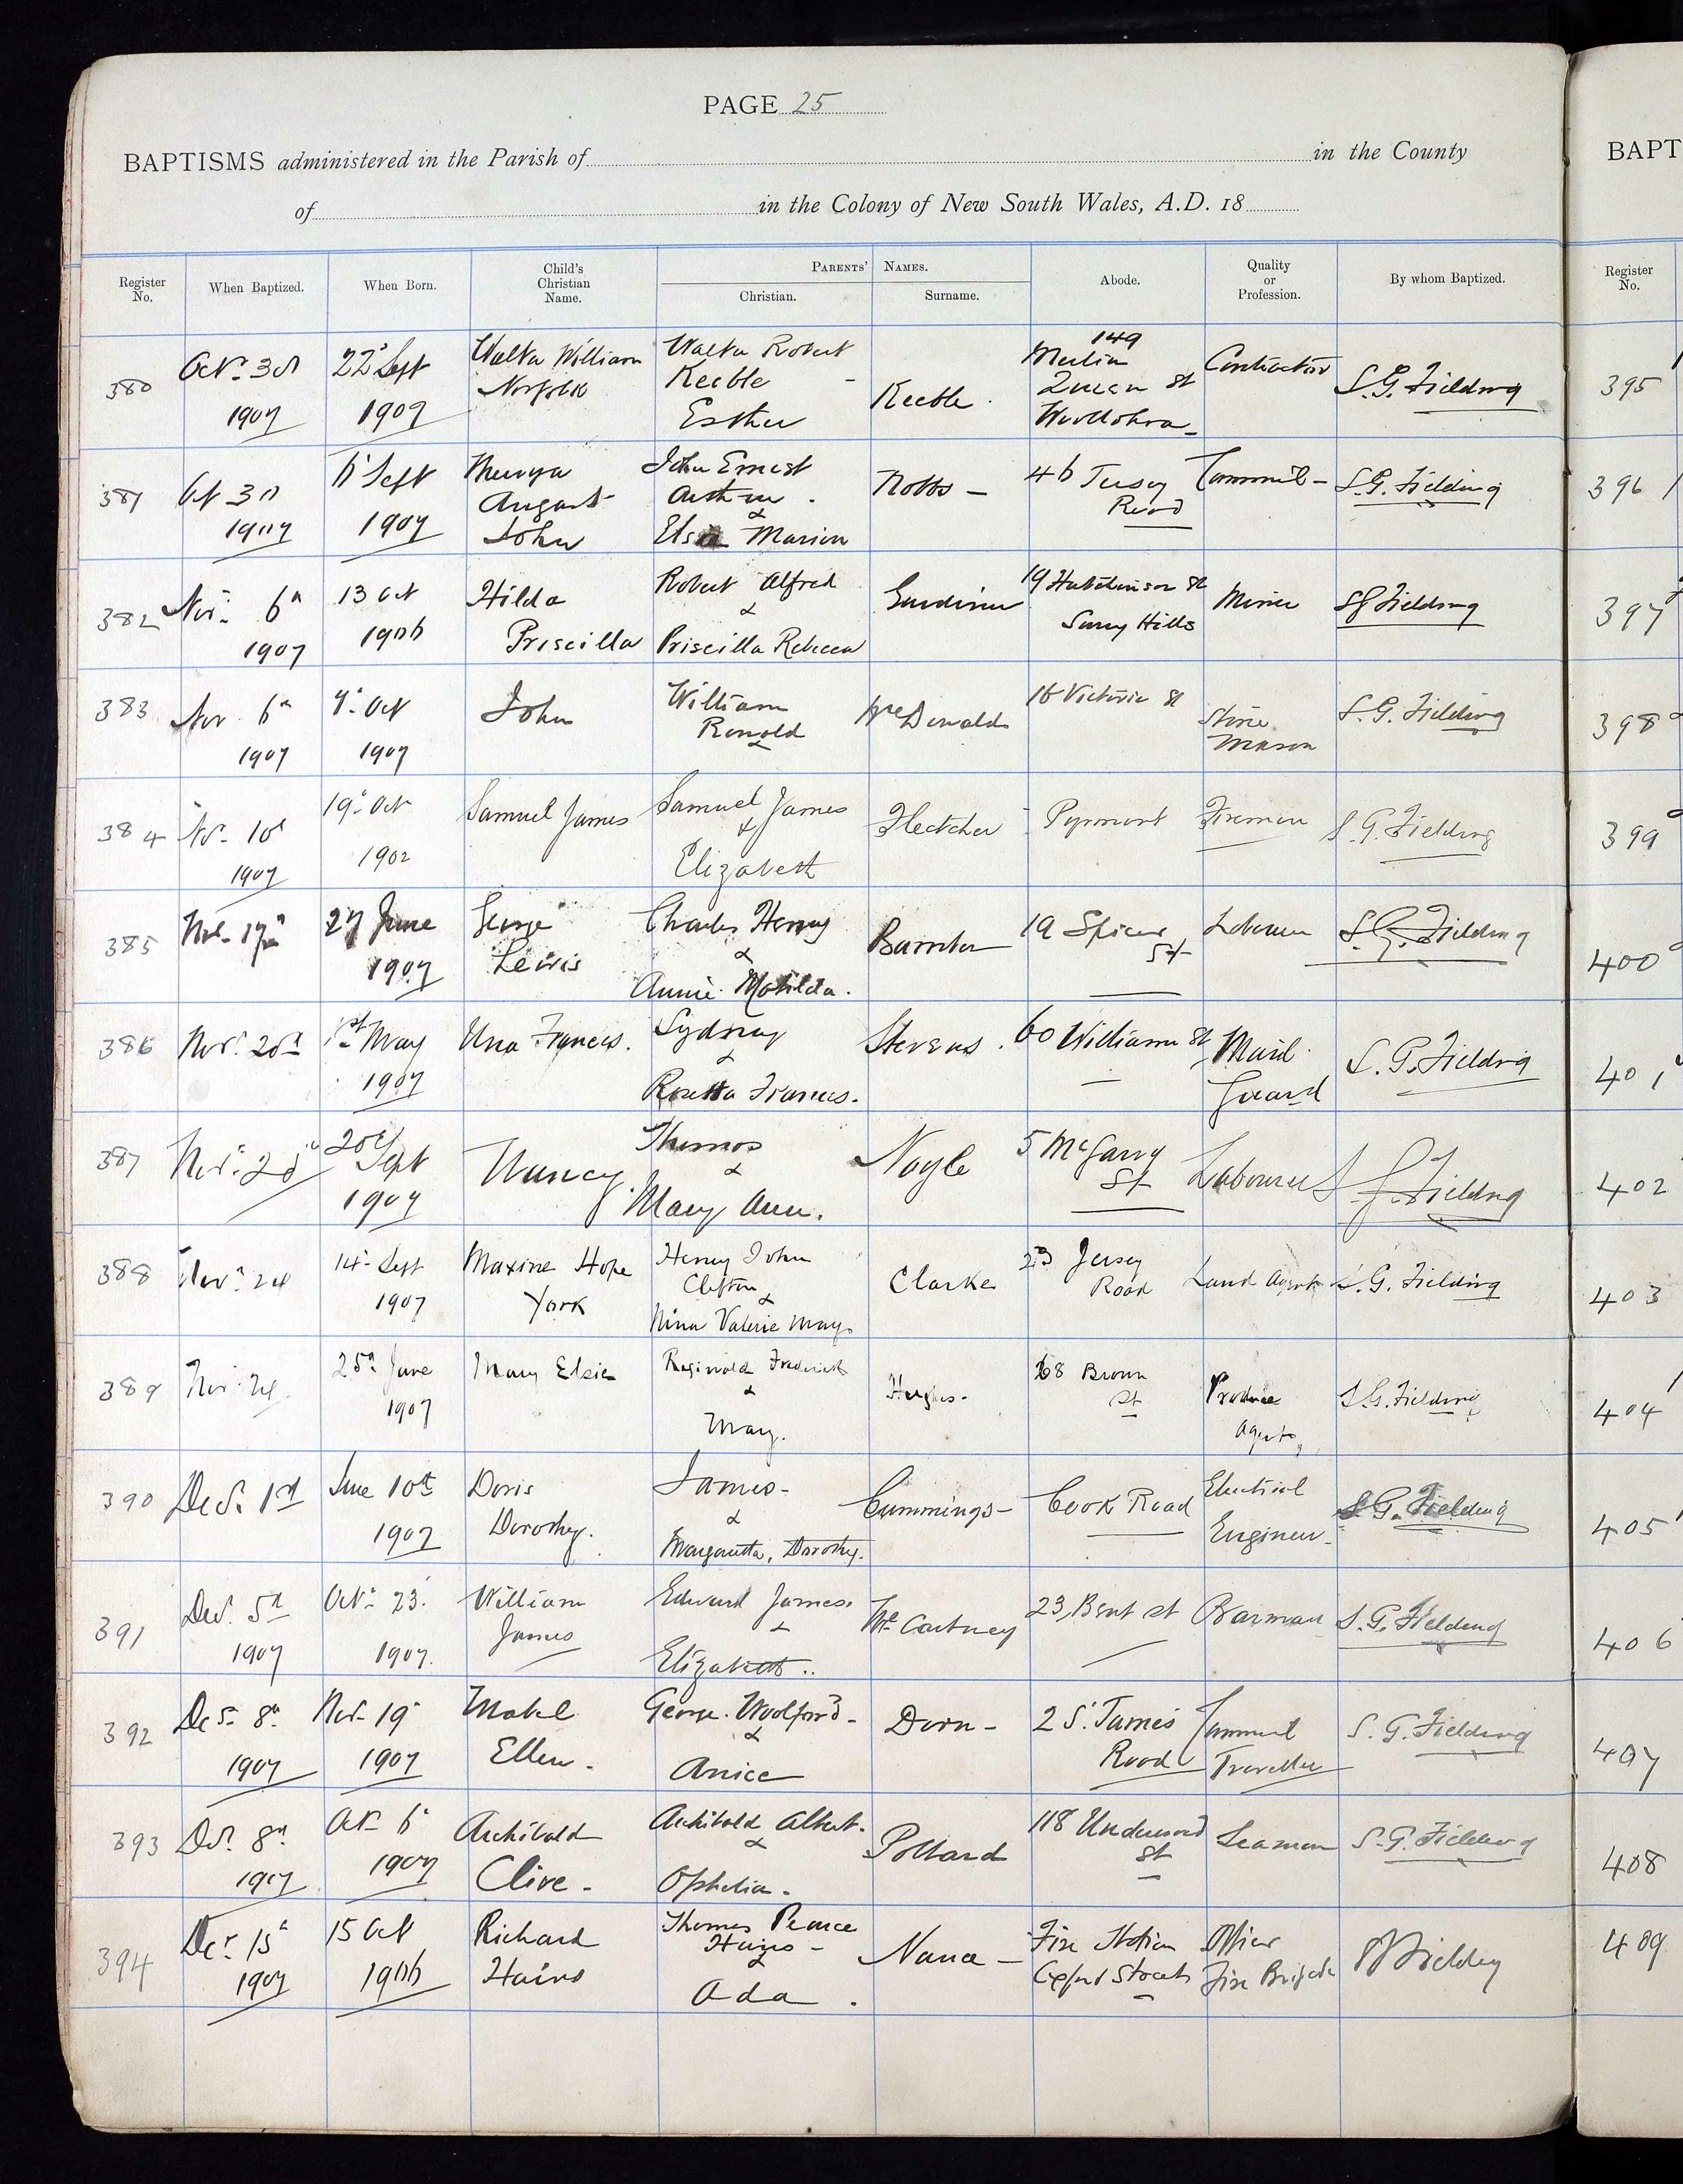 PAGE 25
BAPTISMS administered in the Parish of in the County
of in the Colony of New South Wales, A.D. 18
Register No.
When Baptized.
When Born.
Child's Christian Name.
PARENTS' NAMES.
Christian.
Surname.
Abode.
Quality or Profession.
By whom Baptized.
380
1907
22 Sept
Walter William
Norfolk
Walter Robert
Keeble
Esther
Keeble
149
Queen St
Woollahra
Contractor
S.G. Fielding
381
1907
Sept
1907
August
John
John Ernest
Arthur
&
Marion
Nobbs
46 Jersey
Road
S.G. Fielding
382
Nov. 6
1907
13 Oct
1906
Hilda
Priscilla
Robert Alfred
&
Priscilla Rebecca
Gardiner
19 Hutchinson St
Surry Hills
Miner
SG Fielding
383
Nov. 6
1907
Oct
1907
John
William
Ronald
McDonald
16 Victoria St
Stone
Mason
S.G. Fielding
384
Nov. 10
1907
19 Oct
1902
Samuel James
Samuel James
&
Elizabeth
Fletcher
Pyrmont
Fireman
S.G. Fielding
385
Nov. 17
27 June
1907
George
Lewis
Charles Henry
&
Annie Matilda.
19 Spicer
St
Labourer
S.G. Fielding
386
Nov. 20
1st May
1907
Una Frances.
Sydney
&
Rosetta Frances.
Stevens.
60 William St
Mail
Guard
S.G. Fielding
387
Nov.
20
Sept
1907
Nancy
Thomas
&
Mary Ann.
Noyle
5 McGarvy
St
Labourer
S G Fielding
388
Nov. 24
14 Sept
1907
Maxine Hope
York
Henry John
Clifton
&
Nina Valerie May
Clarke
23 Jersey
Road
Land Agent
S.G. Fielding
389
Nov. 24
25 June
1907
Mary Elsie
Reginald Frederick
&
May.
Hughes.
68 Brown
St
Produce
Agent
S.G. Fielding
390
Dec. 1st
June 10th
1907
Doris
Dorothy.
James
&
Margaretta, Dorothy.
Cummings
Cook Road
Electrical
Engineer
S.G. Fielding
391
Dec. 5
1907
Oct. 23.
1907.
William
James
Edward James.
&
Elizabeth
McCartney
23, Bent St
Barman
S.G. Fielding
392
Dec 8
1907
Nov. 19
1907
Mabel
Ellen.
George. Woolford
&
Anice
Dorn
2 St. James
Road
Traveller
S.G. Fielding
393
Dec. 8
1907
Oct 6
1907
Archibald
Clive
Archibald Albert.
&
Ophelia
Pollard
118 Underwood
St
Seaman
S.G. Fielding
394
Dec. 15
1907
15 Oct
1906
Richard
Hains
Thomas Pearce
Hains
&
Ada
Nance
Fire Station
Oxford Street
Officer
Fire Brigade
Fielding
BAPT
Register No.
395
396
397
398
399
400
401
402
403
404
405
406
407
408
409